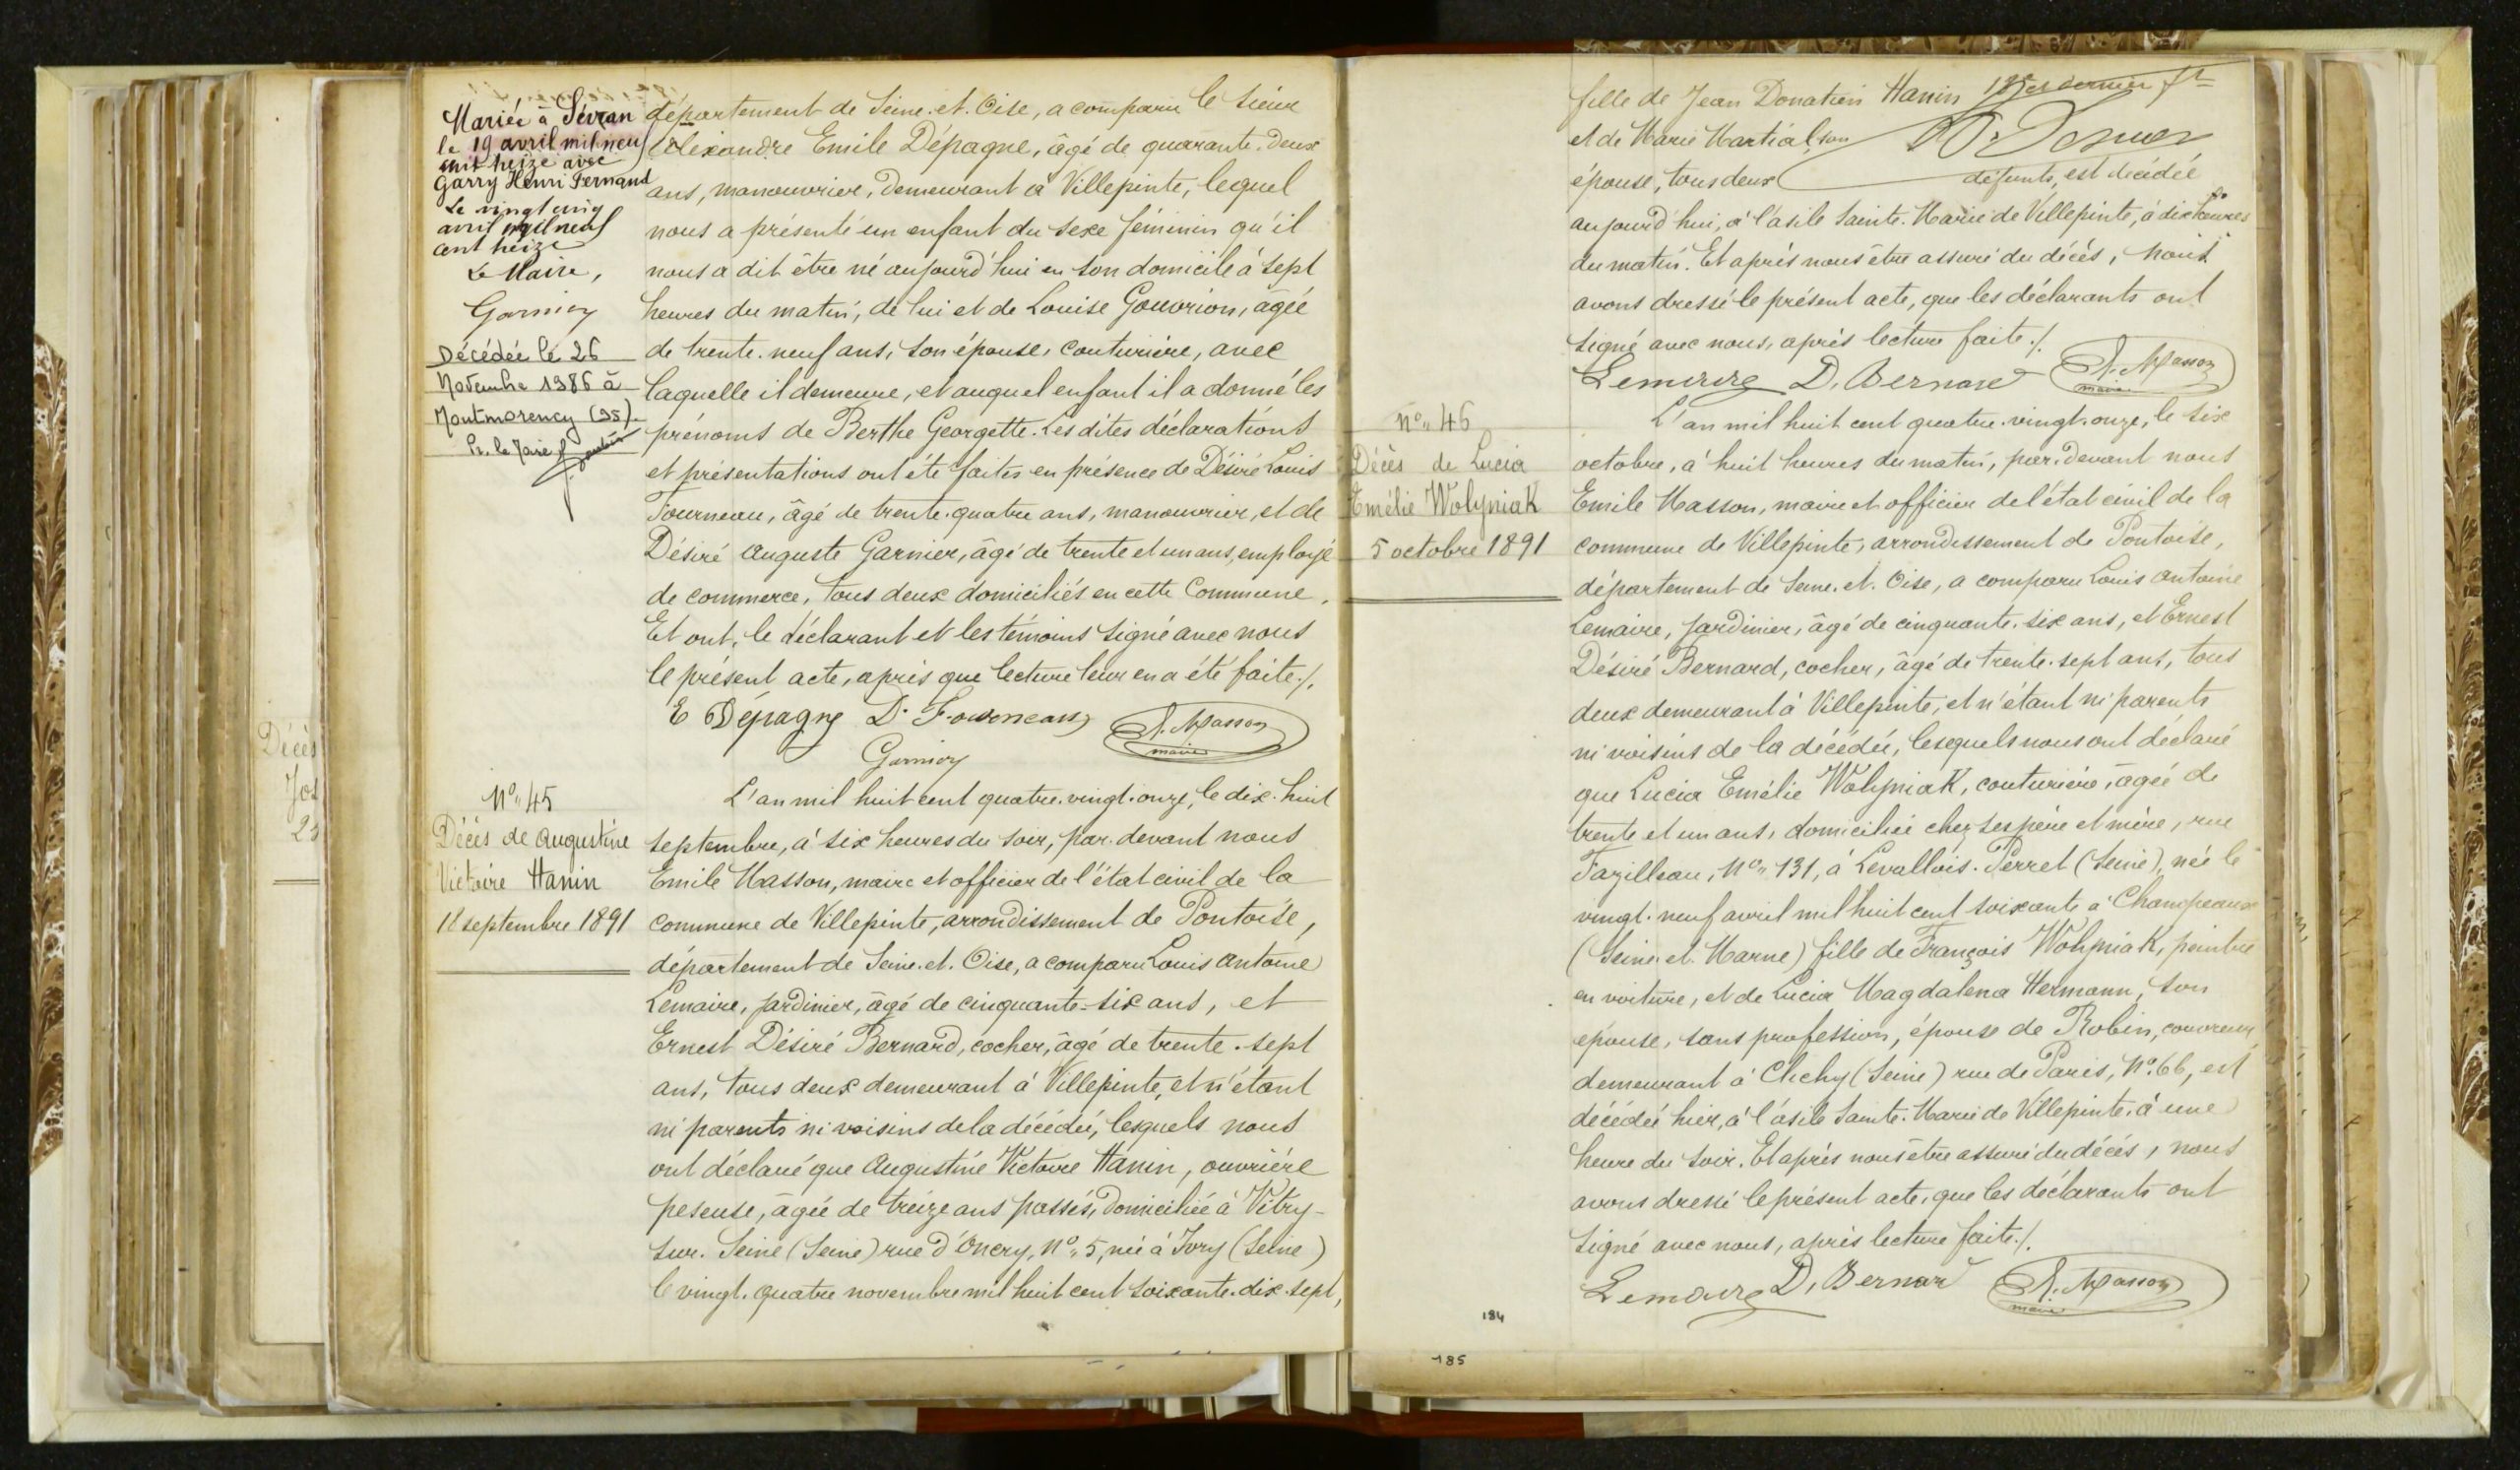 Mariée à Sévran
le 19 avril mil neuf
cent treize avec
Garry Henri Fernand
Le vingt cinq
avril mil neuf
cent treize
Le Maire,
Garnier
Décédée le 26
Novembre 1986 à
Montmorency (95).
département de Seine-et-Oise, a comparu le sieur
Alexandre Emile Dépagne, âgé de quarante-deux
ans, manouvrier, demeurant à Villepinte, lequel
nous a présenté un enfant du sexe féminin qu'il
nous a dit être né aujourd'hui en son domicile à sept
heures du matin, de lui et de Louise Gouvrion, âgée
de trente-neuf ans, son épouse, couturière, avec
laquelle il demeure, et auquel enfant il a donné les
prénoms de Berthe Georgette. Les dites déclarations
et présentations ont été faites en présence de Désiré Louis
Fourneau, âgé de trente-quatre ans, manouvrier, et de
Désiré Auguste Garnier, âgé de trente et un ans, employé
de commerce, tous deux domiciliés en cette Commune.
Et ont, le déclarant et les témoins signé avec nous
le présent acte, après que lecture leur en a été faite./.
E Dépagne D. Fourneau E. Masson
maire
Garnier
N° 45
Décès de Augustine
Victoire Hanin
18 septembre 1891
L'an mil huit cent quatre-vingt-onze, le dix-huit
septembre, à six heures du soir, par-devant nous
Emile Masson, maire et officier de l'état civil de la
commune de Villepinte, arrondissement de Pontoise,
département de Seine-et-Oise, a comparu Louis Antoine
Lemaire, jardinier, âgé de cinquante-six ans, et
Ernest Désiré Bernard, cocher, âgé de trente-sept
ans, tous deux demeurant à Villepinte, et n'étant
ni parents ni voisins de la décédée, lesquels nous
ont déclaré que Augustine Victoire Hanin, ouvrière
peseuse, âgée de treize ans passés, domiciliée à Vitry-
sur-Seine (Seine) rue d'Oncry, N° 5, née à Ivry (Seine)
le vingt-quatre novembre mil huit cent soixante-dix-sept,
Décès
Jos
23
fille de Jean Donatien Hanin dernier
et de Marie Martial, son
épouse, tous deux défunts, est décédée
aujourd'hui, à l'asile Sainte-Marie de Villepinte, à dix heures
du matin. Et après nous être assuré du décès, nous
avons dressé le présent acte, que les déclarants ont
signé avec nous, après lecture faite./.
Lemaire D. Bernard E. Masson
maire
N° 46
Décès de Lucia
Emélie Wolyniak
5 octobre 1891
L'an mil huit cent quatre-vingt-onze, le six
octobre, à huit heures du matin, par-devant nous
Emile Masson, maire et officier de l'état civil de la
commune de Villepinte, arrondissement de Pontoise,
département de Seine-et-Oise, a comparu Louis Antoine
Lemaire, jardinier, âgé de cinquante-six ans, et Ernest
Désiré Bernard, cocher, âgé de trente-sept ans, tous
deux demeurant à Villepinte, et n'étant ni parents
ni voisins de la décédée, lesquels nous ont déclaré
que Lucia Emélie Wolyniak, couturière, âgée de
trente et un ans, domiciliée chez ses père et mère, rue
Fazilleau, N° 131, à Levallois-Perret (Seine), née le
vingt-neuf avril mil huit cent soixante à Champeaux
(Seine-et-Marne) fille de François Wolyniak, peintre
en voiture, et de Lucia Magdalena Hermann, son
épouse, sans profession, épouse de Robin, couvreur,
demeurant à Clichy (Seine) rue de Paris, N° 66, est
décédée hier, à l'asile Sainte-Marie de Villepinte, à une
heure du soir. Et après nous être assuré du décès, nous
avons dressé le présent acte, que les déclarants ont
signé avec nous, après lecture faite./.
Lemaire D. Bernard E. Masson
maire
184
185